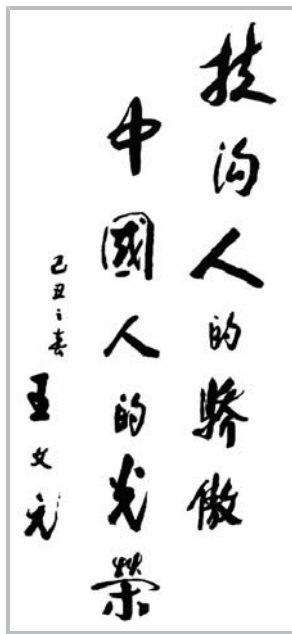 扶沟人的骄傲
中國人的光荣
己丑之春
王文元